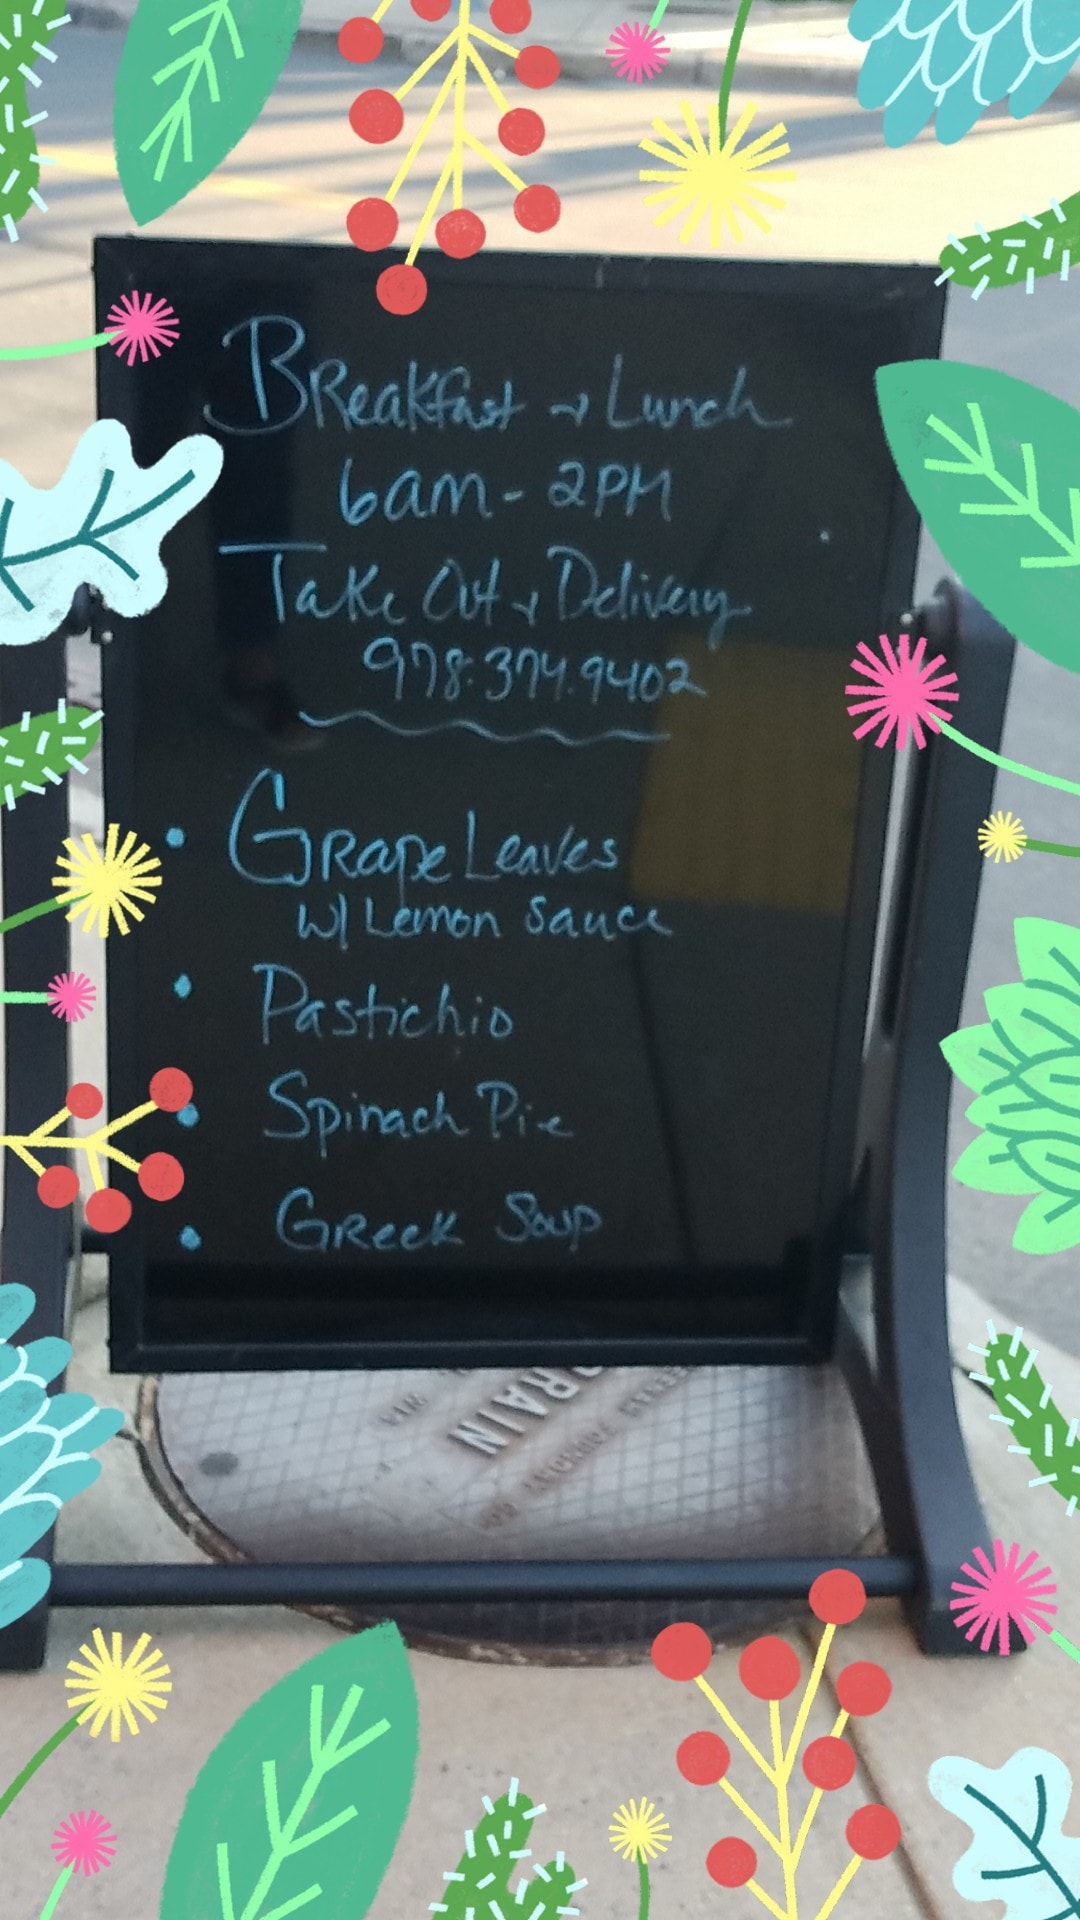 Breakfast + Lunch
6am - 2PM
Take Out + Delivery
978.374.9402
• Grape Leaves
w/ Lemon Sauce
• Pastichio
• Spinach Pie
• Greek Soup
DRAIN